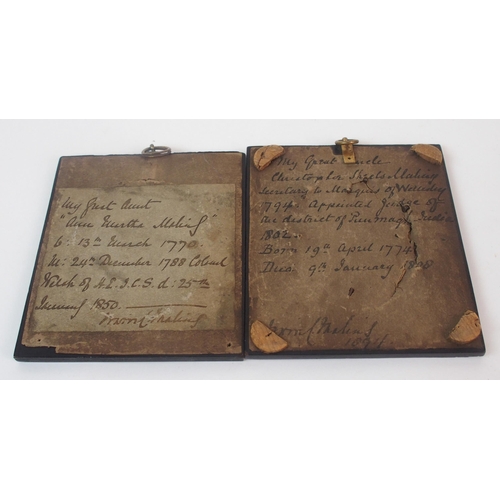 My Great Aunt
"Ann Martha Maling"
b: 13th March 1770.
m: 24th December 1788 Colonel
Welsh of H.E.I.C.S. d: 25th
January 1850.
Maling
My Great Uncle
Christopher Maling
Secretary to Marquis of Wellesley
1794. Appointed Judge of
the district of India
1802.
Born 19th April 1774
Died 9th January
Maling